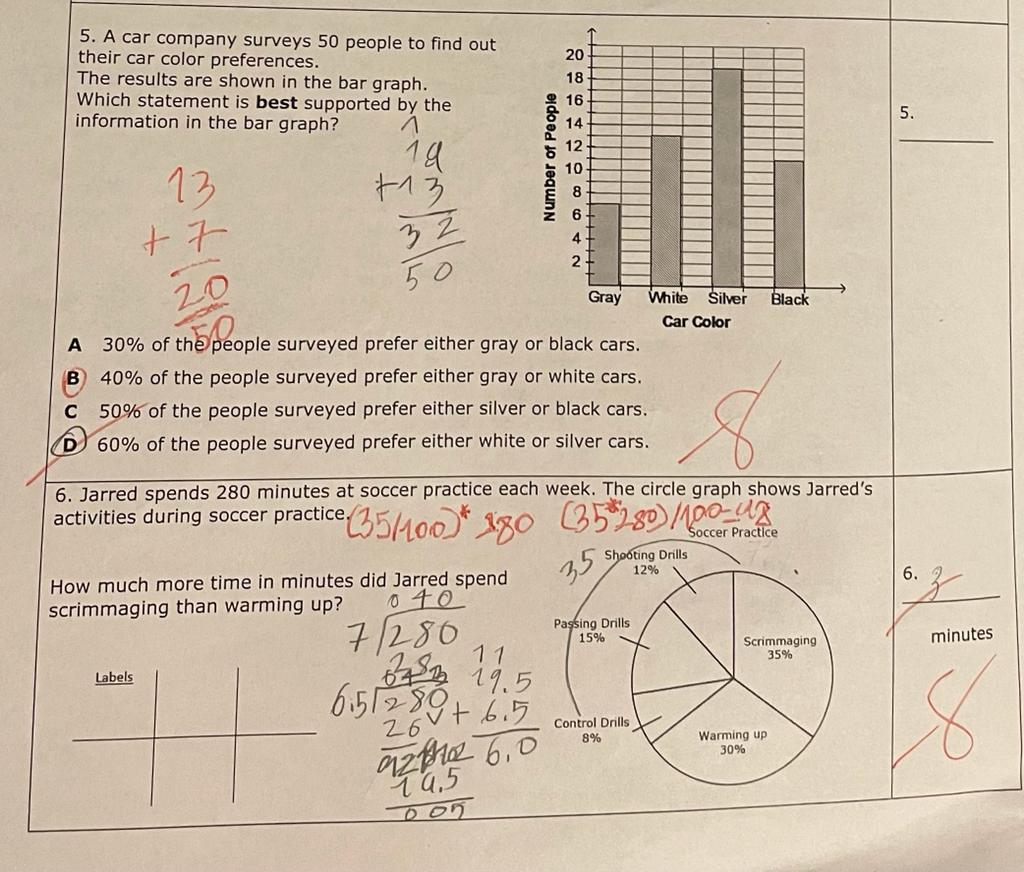 5. A car company surveys 50 people to find out
their car color preferences.
The results are shown in the bar graph.
Which statement is best supported by the
information in the bar graph?
13
+ 7
20
50
1
19
+13
32
50
Number of People
20
18
16
14
12
10
8
6
4
2
Gray White Silver Black
Car Color
5.
A 30% of the people surveyed prefer either gray or black cars.
B 40% of the people surveyed prefer either gray or white cars.
C 50% of the people surveyed prefer either silver or black cars.
D 60% of the people surveyed prefer either white or silver cars.
8
6. Jarred spends 280 minutes at soccer practice each week. The circle graph shows Jarred's
activities during soccer practice.
(35/100)* 280 (35*280)/100=98
How much more time in minutes did Jarred spend
scrimmaging than warming up?
040
7/280
6.5/280
26
19.5
11
19.5
+ 6.5
6.0
Labels
35
Soccer Practice
Shooting Drills
12%
Passing Drills
15%
Scrimmaging
35%
Control Drills
8%
Warming up
30%
6.
minutes
8